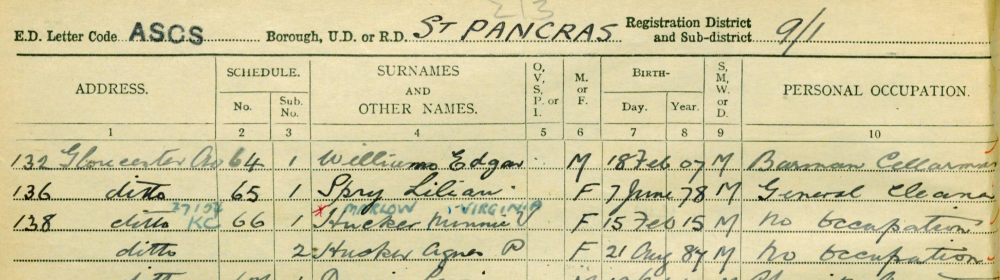 213
E.D. Letter Code ASCS Borough, U.D. or R.D. ST PANCRAS Registration District and Sub-district 9/1
ADDRESS. SCHEDULE. No. Sub. No. SURNAMES AND OTHER NAMES. O, V, S, P. or I. M. or F. BIRTH- Day. Year. S, M, W. or D. PERSONAL OCCUPATION.
1 2 3 4 5 6 7 8 9 10
132 Gloucester Av 64 1 Williams Edgar M 18 Feb 07 M Barman Cellarman
136 ditto 65 1 Spry Lilian F 7 June 78 M General Cleaner
MARLOW VIRGINIA
138 ditto KC 66 1 Hucker Minnie V F 15 Feb 15 M No occupation
ditto 2 Hucker Agnes P F 21 Aug 84 M No occupation